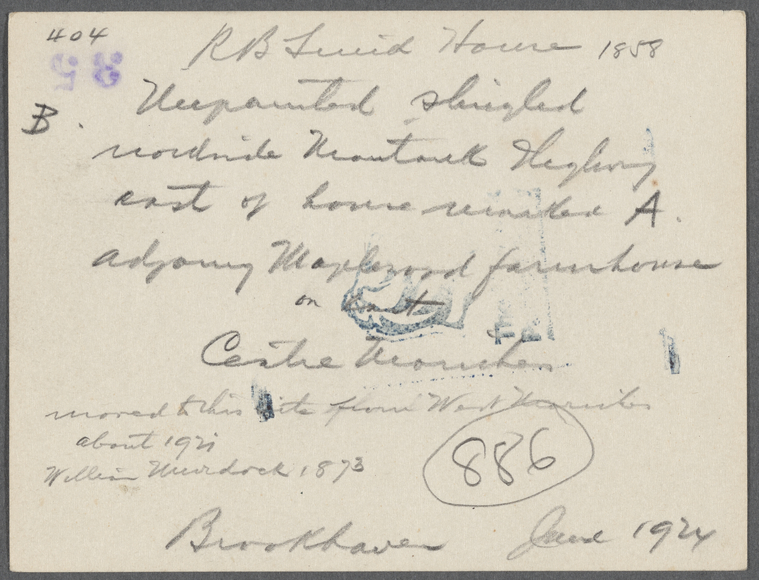 404
R B House 1858
35
Unpainted shingled
B.
northside Montauk Highway
east of house marked A.
adjoining Maplewood farmhouse
on east
Centre Moriches
moved to this site from West Moriches
about 1921
William Murdock 1873
886
Brookhaven June 1924